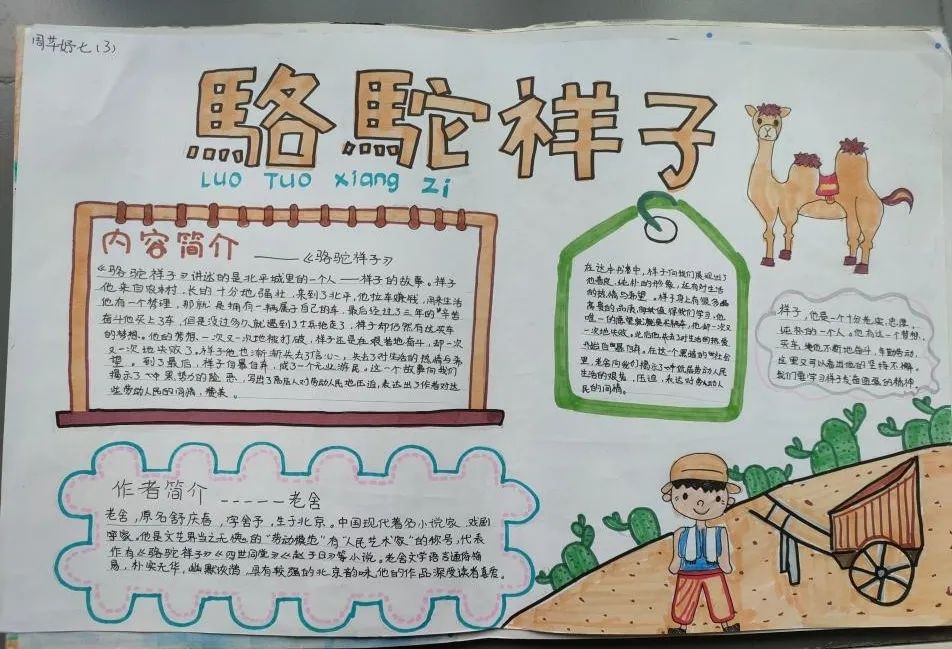 周苹妤七(3)
駱駝祥子
LUO TUO xiang zi
内容简介 ——《骆驼祥子》
《骆驼祥子》讲述的是北平城里的一个人——祥子的故事。祥子
他来自农村,长的十分地强壮,来到了北平,他拉车赚钱,用来生活
他有一个梦理,那就是拥有一辆属于自己的车,最后经过了三年的"辛苦
奋斗他买上了车,但是没过多久就遇到了车抢走了,祥子却仍然有这买车
的梦想。他的梦想一次又一次地被打破,祥子还是在艰着地奋斗,却一次
又一次地失败了。祥子他也渐渐失去了信心,失去了对生活的热情与希
望。到了最后,祥子自暴自弃,成了一个无业游民。这一个故事向我们
揭示了黑势力的险恶,写出了高层人对劳动人民地压迫,表达出了作者对这
些劳动人民的同情,赞美。
在这本书中,祥子向我们展现出了
他善良、纯朴的形象,还有对生活
的热情与希望。祥子身上有很多
高贵的品质,值得我们学习,他
唯一的愿望就是买辆车,他却一次又
一次地失败。此后他失去了对生活的热爱
开始自暴自弃。在这个黑暗的社会
里,老舍向我们揭示了低层劳动人民
生活的艰苦、压迫,表达对劳动人
民的同情。
祥子,他是一个十分老实,忠厚,
纯朴的一个人。他有过一个梦想,
买车,他也不断地奋斗,辛勤劳动,
这里又可以看出他的坚持不懈。
我们要学习祥子发奋图强的精神。
作者简介 -----老舍
老舍,原名舒庆春,字舍予,生于北京。中国现代著名小说家,戏剧
家。他是文艺界当之无愧的"劳动模范"有"人民艺术家"的称号,代表
作有《骆驼祥子》《四世同堂》《赵子曰》等小说。老舍文学语言通俗简
易,朴实无华,幽默诙谐,具有较强的北京韵味,他的作品深度读者喜爱。